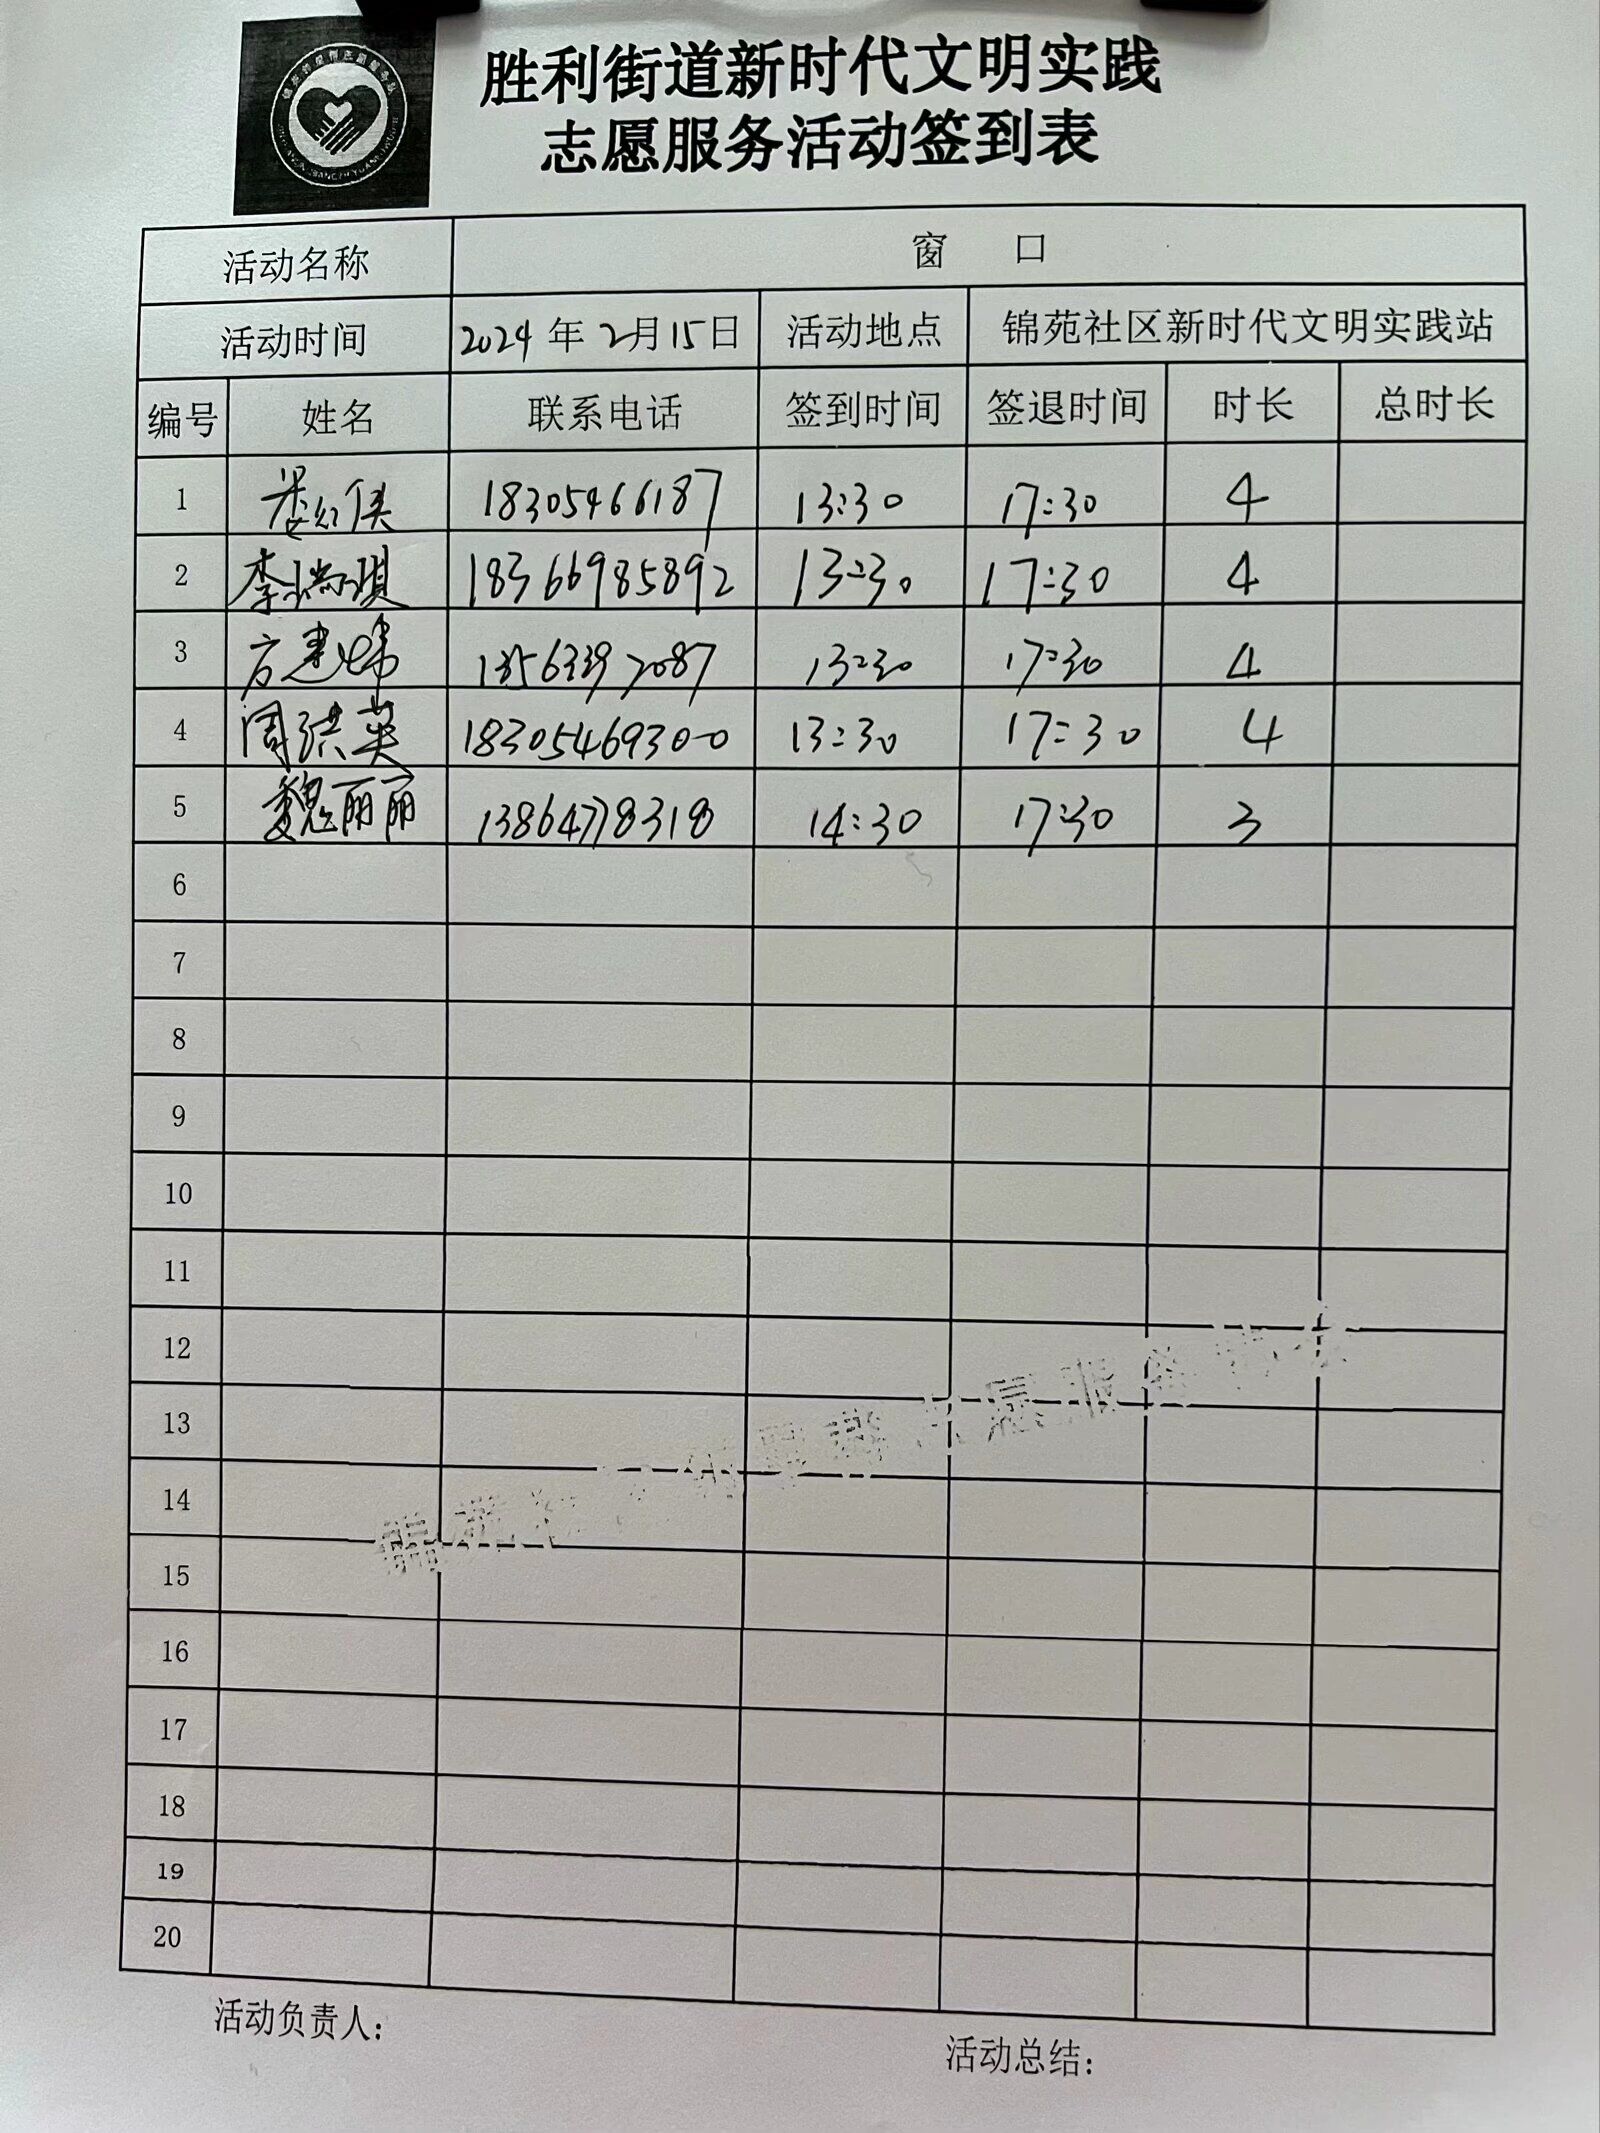 胜利街道新时代文明实践
志愿服务活动签到表
活动名称 窗 口
活动时间 2024年2月15日 活动地点 锦苑社区新时代文明实践站
编号 姓名 联系电话 签到时间 签退时间 时长 总时长
1 18305466187 13:30 17:30 4
2 李瑞琪 18366985892 13:30 17:30 4
3 方建 13563397087 13:30 17:30 4
4 周洪英 18305469300 13:30 17:30 4
5 魏丽丽 13864778318 14:30 17:30 3
6
7
8
9
10
11
12
13
14
15
16
17
18
19
20
活动负责人:
活动总结: